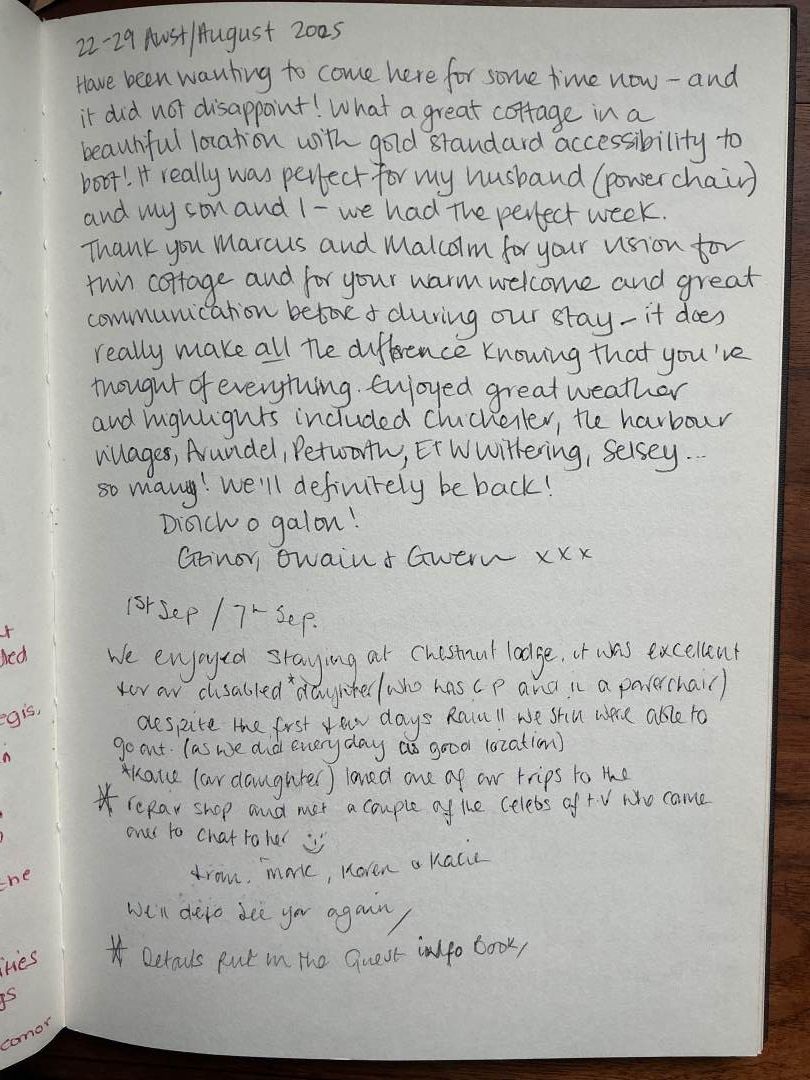 22-29 Awst/August 2025
Have been wanting to come here for some time now - and
it did not disappoint! What a great cottage in a
beautiful location with gold standard accessibility to
boot! It really was perfect for my husband (powerchair)
and my son and I - we had the perfect week.
Thank you Marcus and Malcolm for your vision for
this cottage and for your warm welcome and great
communication before & during our stay - it does
really make all the difference knowing that you've
thought of everything. Enjoyed great weather
and highlights included Chichester, the harbour
villages, Arundel, Petworth, E+W Wittering, Selsey...
so many! We'll definitely be back!
Diolch o galon!
Gainor, Owain & Gwern xxx
1st Sep / 7th Sep.
We enjoyed staying at Chestnut lodge, it was excellent
for our disabled *daughter (who has CP and is a powerchair)
despite the first few days Rain!! We still were able to
go out. (as we did everyday as good location)
*Katie (our daughter) loved one of our trips to the
* repair shop and met a couple of the celebs of t.v who came
over to chat to her
from. Mark, Karen & Katie
We'll defo see you again/
* Details put in the Guest info Book/
ities
gs
egis.
the
comor